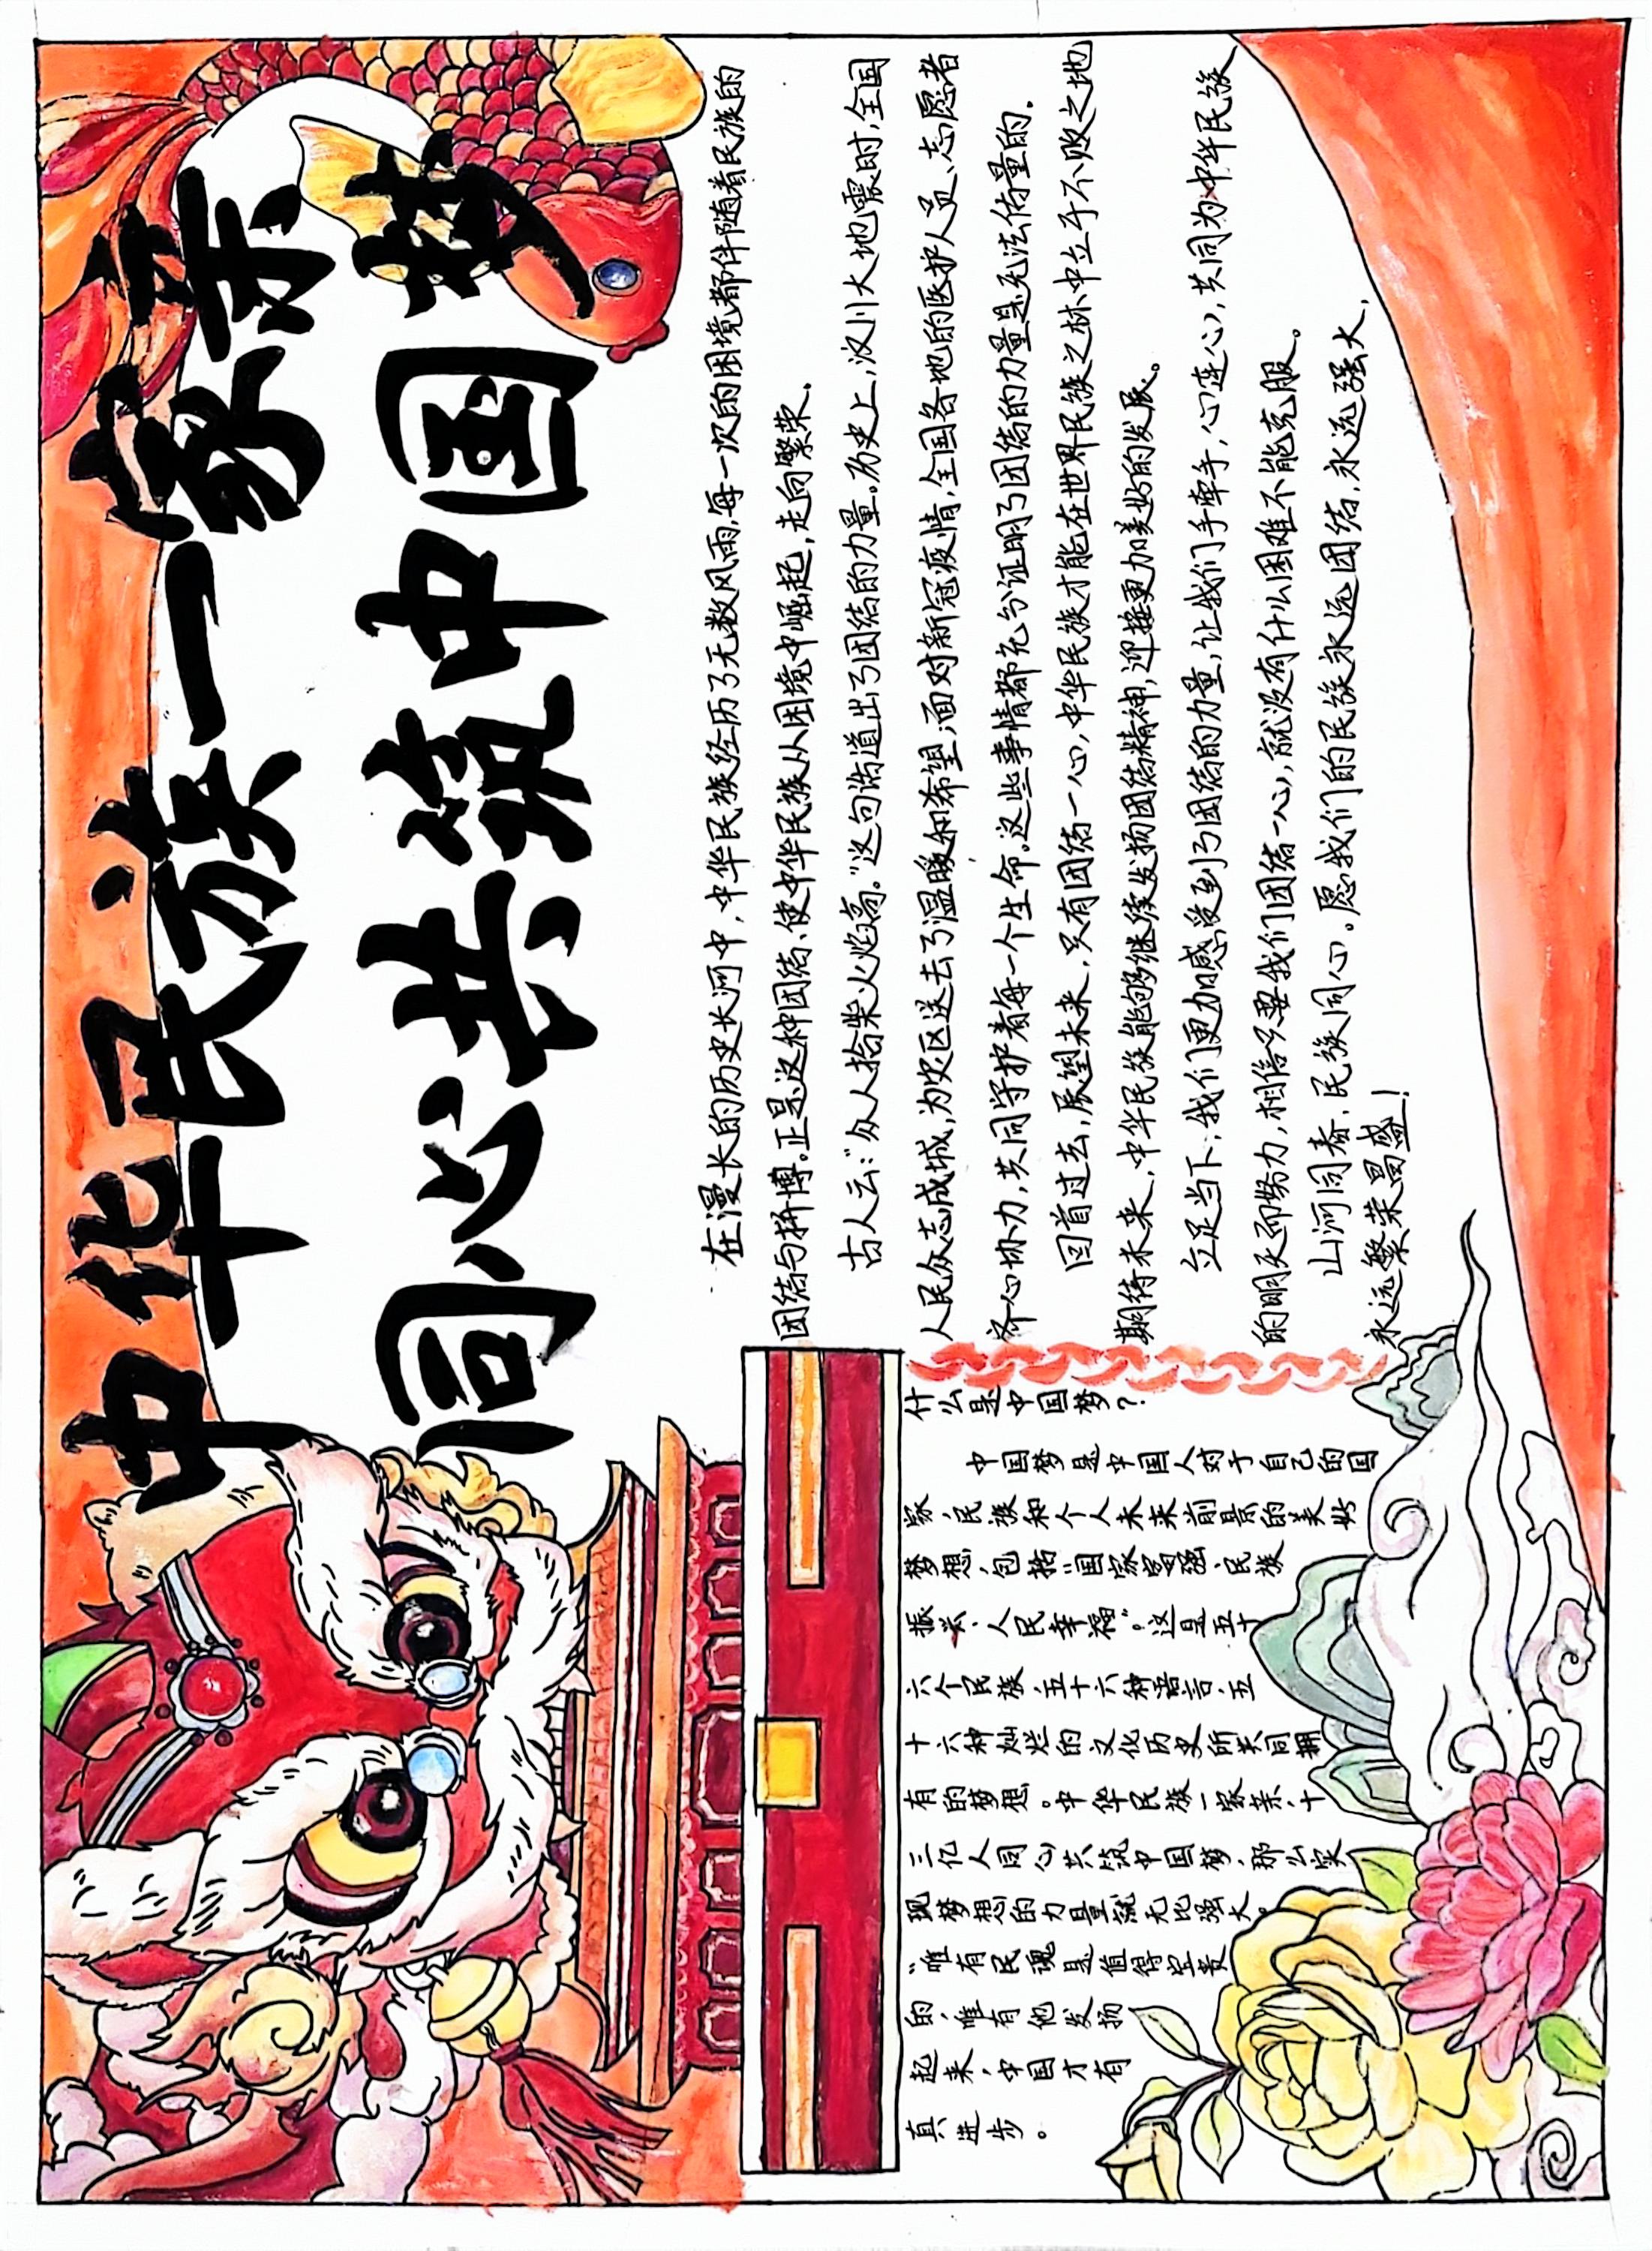 中华民族一家亲
同心共筑中国梦
在漫长的历史长河中,中华民族经历了无数风雨,每一次的困境都伴随着民族的
团结与拼搏。正是这种团结、使中华民族从困境中崛起,走向繁荣.
古人云:"众人拾柴火焰高。"这句话道出了团结的力量。历史上,汶川大地震时,全国
人民众志成城,为灾区送去了温暖和希望;面对新冠疫情,全国各地的医护人员、志愿者
齐心协力,共同守护着每一个生命。这些事情都充分证明了团结的力量是无法估量的.
回首过去,展望未来,只有团结一心,中华民族才能在世界民族之林中立于不败之地
期待未来,中华民族能够继续发扬团结精神,迎接更加美好的发展。
立足当下,我们更加感受到了团结的力量,让我们手牵手,心连心,共同为中华民族
的明天而努力,相信只要我们团结一心,就没有什么困难不能克服。
山河同春,民族同心。愿我们的民族永远团结,永远强大,
永远繁荣昌盛!
什么是中国梦?
中国梦是中国人对于自己的国
家,民族和个人未来前景的美好
梦想,包括"国家富强、民族
振兴、人民幸福"。这是五十
六个民族,五十六种语言,五
十六种灿烂的文化历史所共同拥
有的梦想。中华民族一家亲,十
三亿人同心共筑中国梦,那么实
现梦想的力量就无比强大。
"唯有民魂是值得宝贵
的,唯有他发扬
起来,中国才有
真进步。